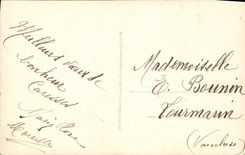 Meilleurs vœux de
bonheur
Caresses
Mademoiselle
E. Bounin
Lourmarin
(Vaucluse)